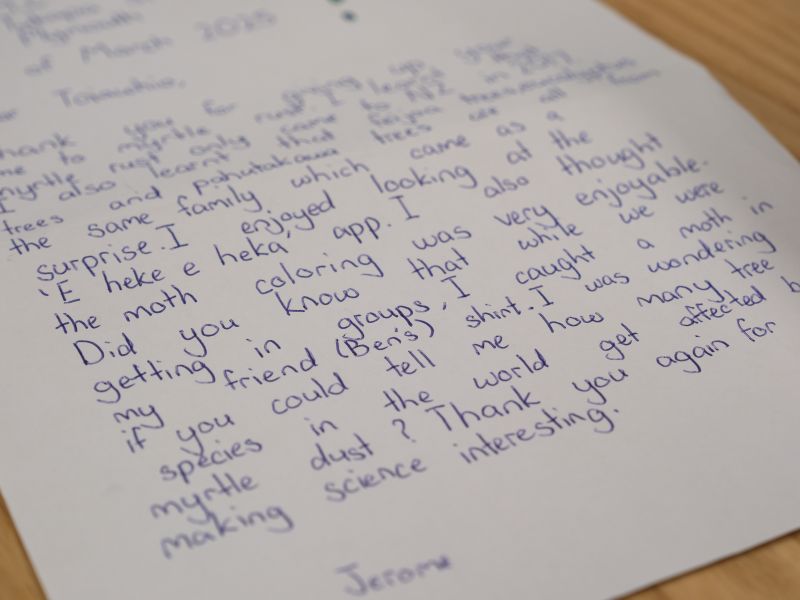 Plymouth
of March 2025
hank you for giving up your
me to myrtle rust. I learnt that
myrtle rust only came to NZ in 2017.
I also learnt that feijoa trees,
trees and pohutakawa trees are all from
the same family which came as a
surprise. I enjoyed looking at the
'E heke e heka' app. I also thought
the moth coloring was very enjoyable.
Did you know that while we were
getting in groups, I caught a moth in
my friend (Ben's) shirt. I was wondering
if you could tell me how many tree
species in the world get affected b
myrtle dust? Thank you again for
making science interesting.
Jerome